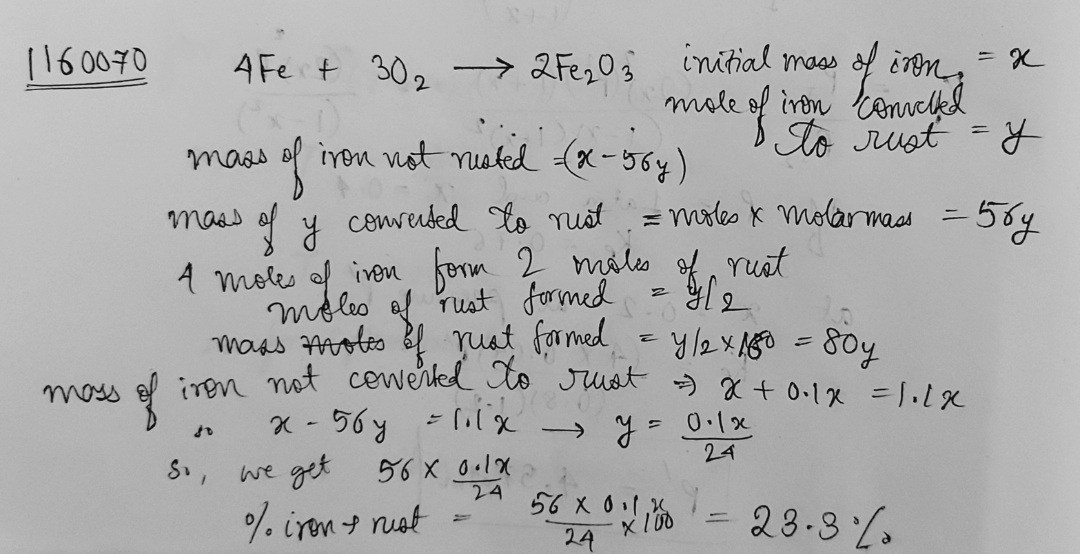 1160070 4Fe + 3O₂ → 2Fe₂O₃ initial mass of iron = x
mole of iron converted
to rust = y
mass of iron not rusted = (x - 56y)
mass of y converted to rust = moles x molar mass = 56y
4 moles of iron form 2 moles of rust
moles of rust formed = y/2
mass moles of rust formed = y/2 x 160 = 80y
mass of iron not converted to rust ⇒ x + 0.1x = 1.1x
so x - 56y = 1.1x → y = 0.1x/24
So, we get 56 x 0.1x/24
% iron → rust = 56 x 0.1x/24 x 100 = 23.3%